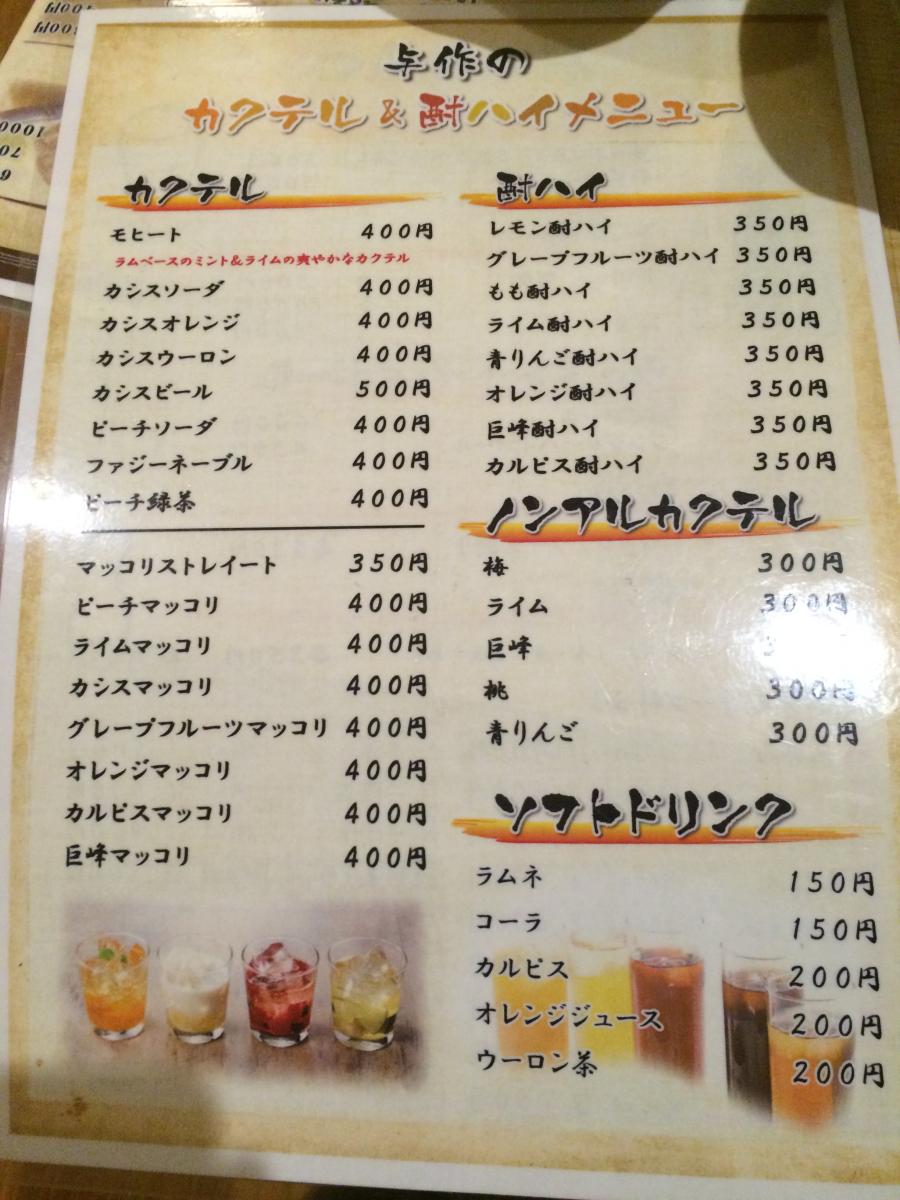 与作の
カクテル & 酎ハイメニュー
カクテル
モヒート 400円
ラムベースのミント&ライムの爽やかなカクテル
カシスソーダ 400円
カシスオレンジ 400円
カシスウーロン 400円
カシスビール 500円
ピーチソーダ 400円
ファジーネーブル 400円
ピーチ緑茶 400円
マッコリストレイート 350円
ピーチマッコリ 400円
ライムマッコリ 400円
カシスマッコリ 400円
グレープフルーツマッコリ 400円
オレンジマッコリ 400円
カルピスマッコリ 400円
巨峰マッコリ 400円
酎ハイ
レモン酎ハイ 350円
グレープフルーツ酎ハイ 350円
もも酎ハイ 350円
ライム酎ハイ 350円
青りんご酎ハイ 350円
オレンジ酎ハイ 350円
巨峰酎ハイ 350円
カルピス酎ハイ 350円
ノンアルカクテル
梅 300円
ライム 300円
巨峰
桃 300円
青りんご 300円
ソフトドリンク
ラムネ 150円
コーラ 150円
カルピス 200円
オレンジジュース 200円
ウーロン茶 200円